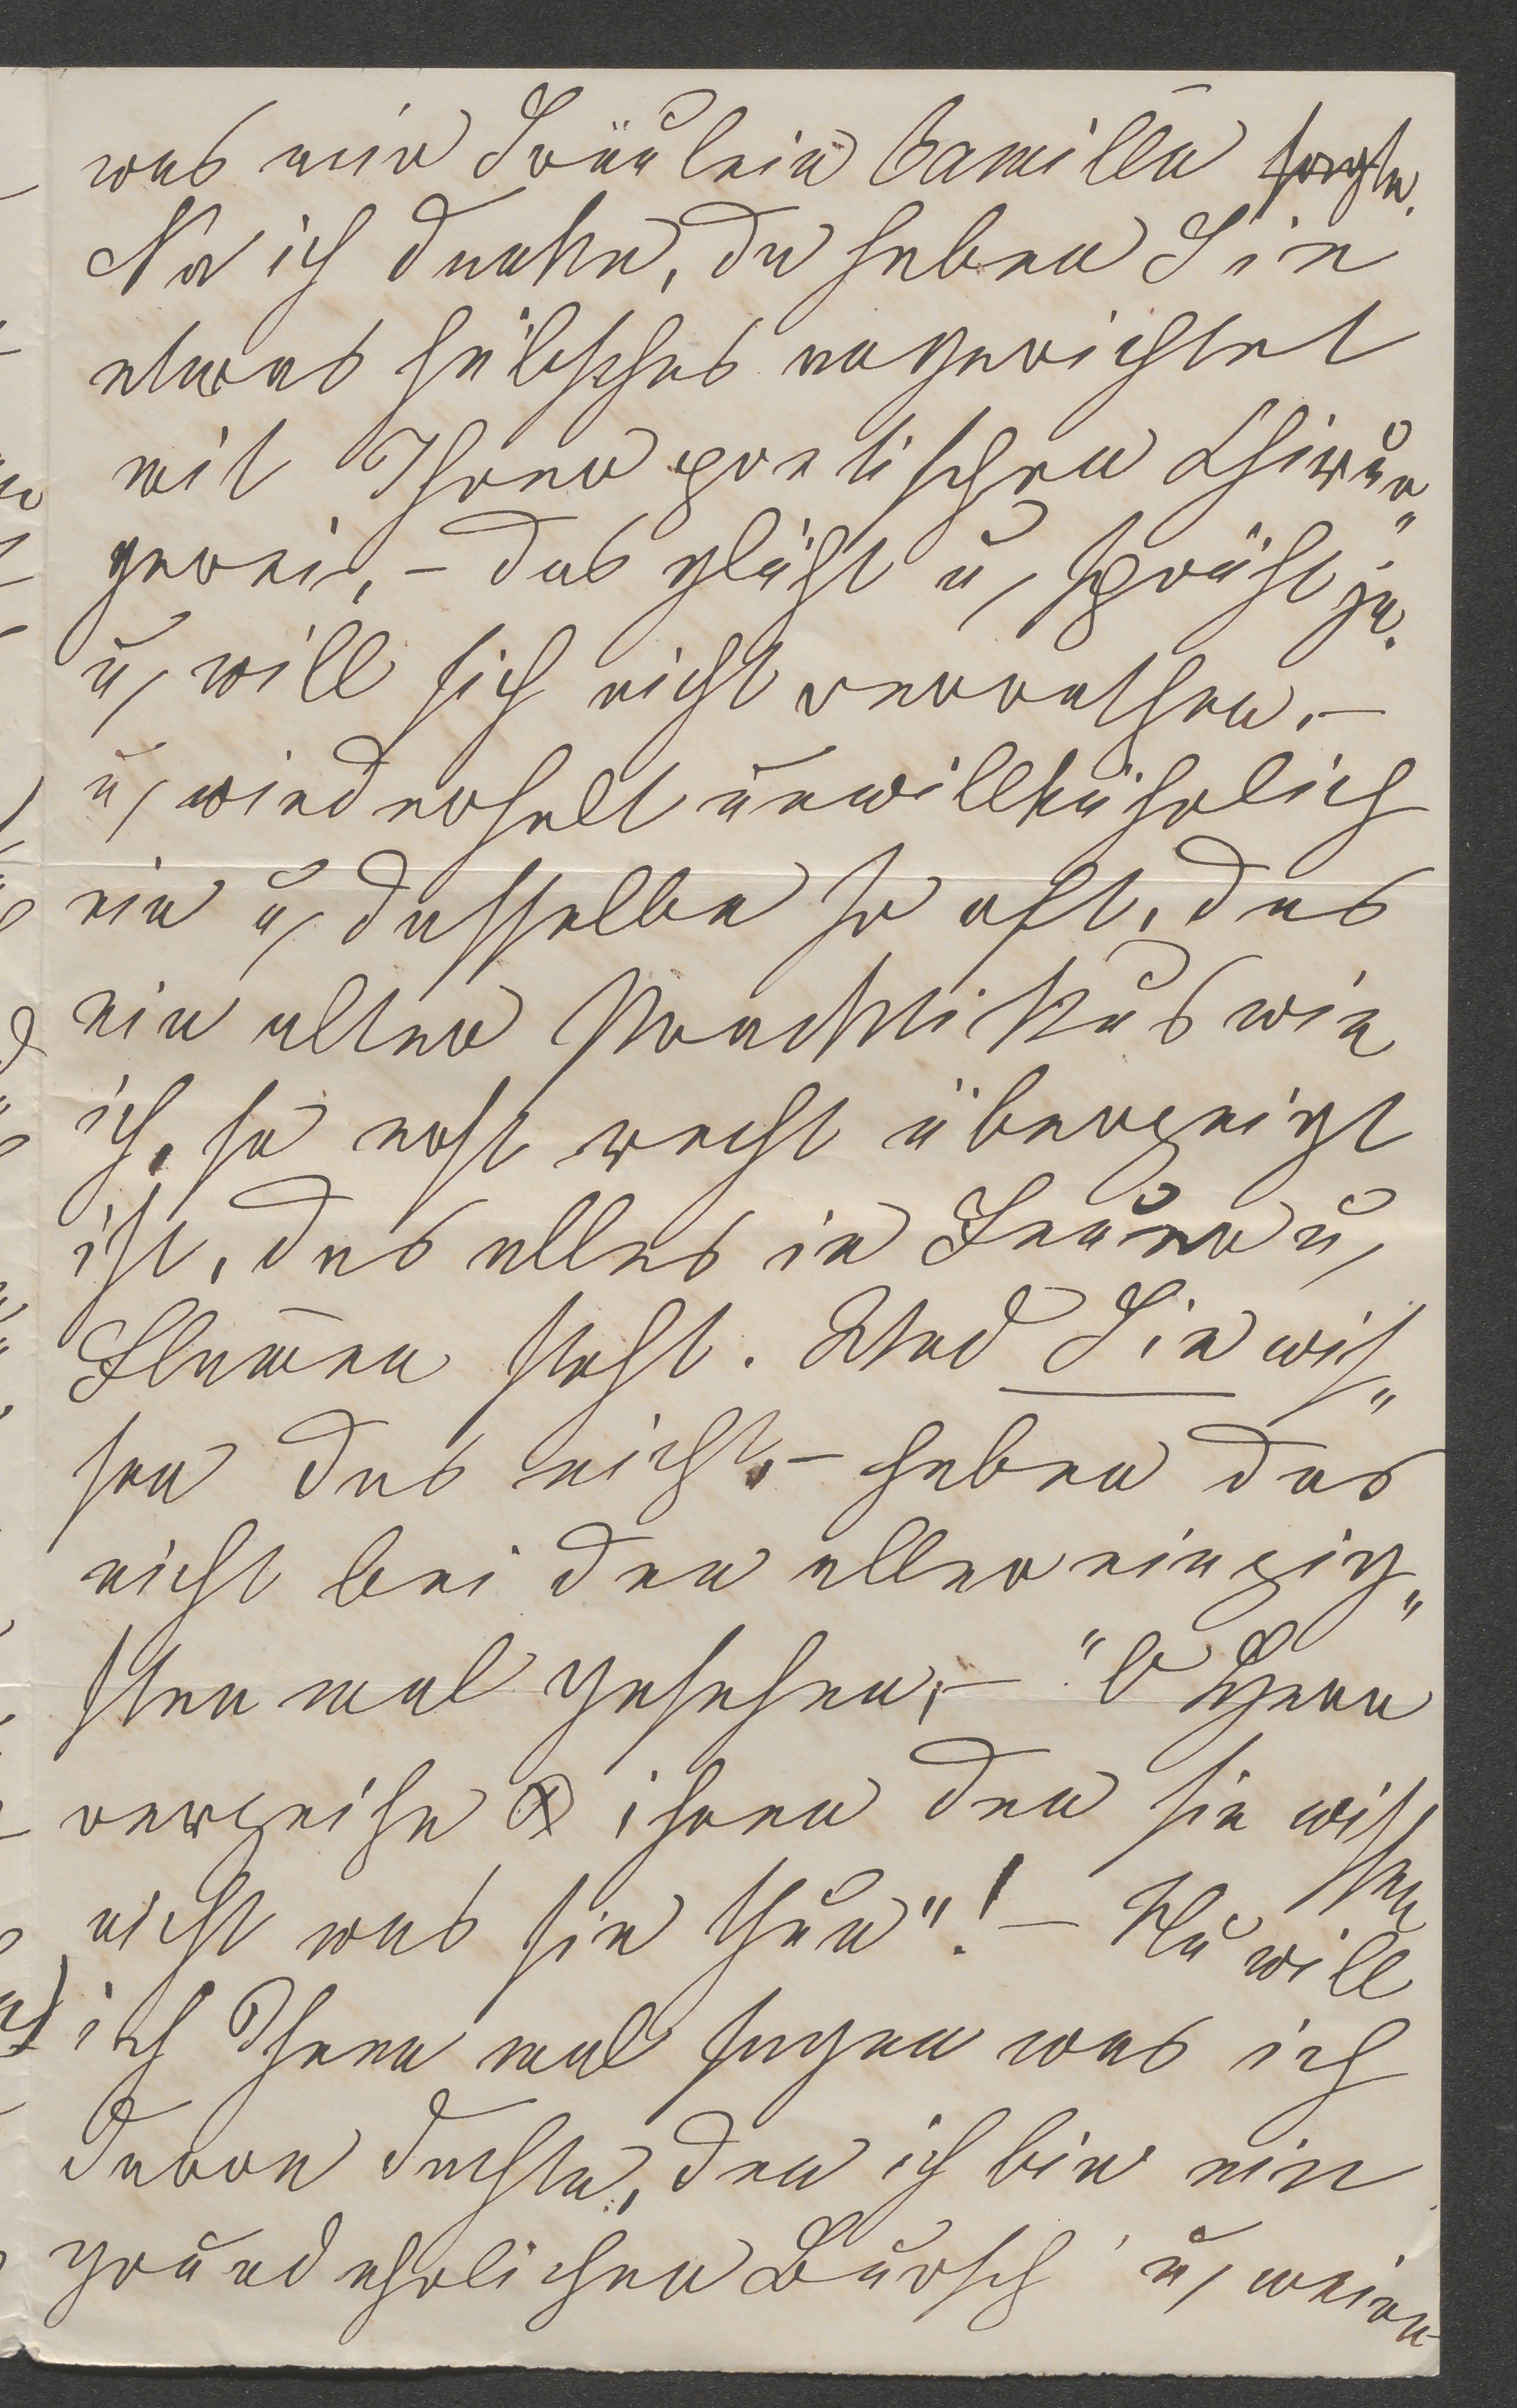 was mir Fräulein Camilla sagte.
Na ich danke, da haben Sie
etwas hübsches angerichtet
mit Ihrer poetischen
gerei, – das glüht u, sprüht ja.
u, will sich nicht verrathen, –
u, wiederholt unwillkührlich
ein u, dasselbe so oft, das
ein alter Practikus wie
ich, so erst recht überzeigt
ist, das alles in Feuer u,
Flam̄en steht. Und Sie wis„
sen das nicht, – haben das
nicht bei den allereinzig„
sten mal gesehen, – "O Herr
verzeihe ihnen den sie wissen
nicht was sie thun"! – Nu will
ich Ihnen mal sagen was ich
davon dachte, den ich bin ein
grundehrlicher Bursch u, meine